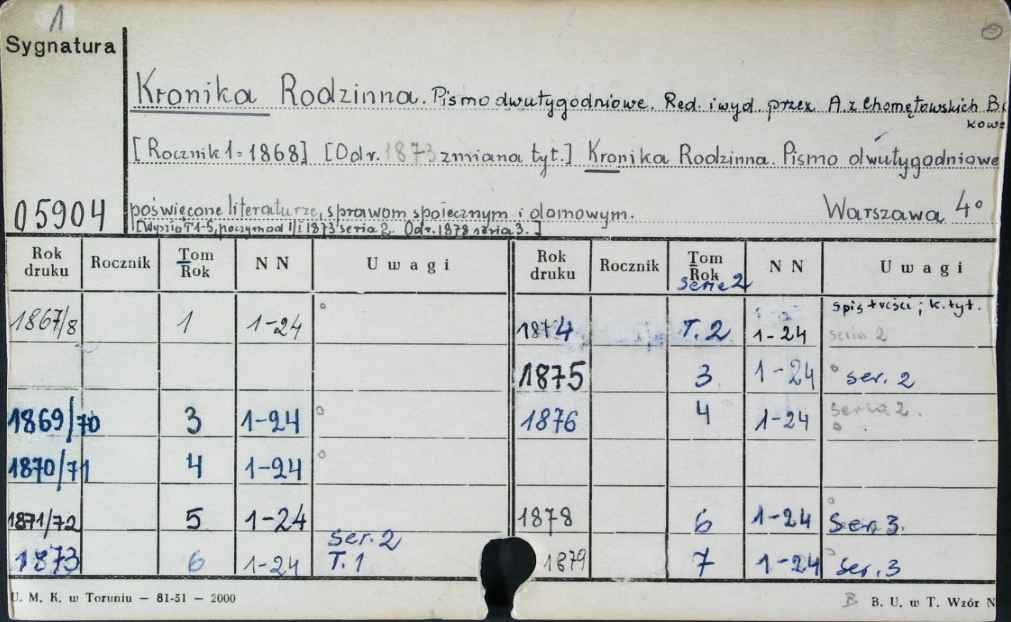 1
Sygnatura
Kronika Rodzinna. Pismo dwutygodniowe. Red. i wyd. przez A. z Chomętowskich B
kowa
[Rocznik 1 = 1868] [Od r. 1873 zmiana tyt.] Kronika Rodzinna. Pismo dwutygodniowe
05904 poświęcone literaturze, sprawom społecznym i domowym. Warszawa 4°
T 1-5, począwszy od 1/I 1873 seria 2. Od r. 1878 seria 3.]
Rok druku Rocznik Tom Rok NN Uwagi Rok druku Rocznik Tom Rok seria 2 NN Uwagi
1867/8 1 1-24 ° 1874 T. 2 1-24 spis treści; k. tyt. seria 2
1875 3 1-24 ° ser. 2
1869/70 3 1-24 ° 1876 4 1-24 seria 2. °
1870/71 4 1-24 °
1871/72 5 1-24 1878 6 1-24 ° Ser. 3.
1873 6 1-24 Ser. 2 T. 1 1879 7 1-24 ° Ser. 3
U. M. K. w Toruniu — 81-51 — 2000 B B. U. w T. Wzór N